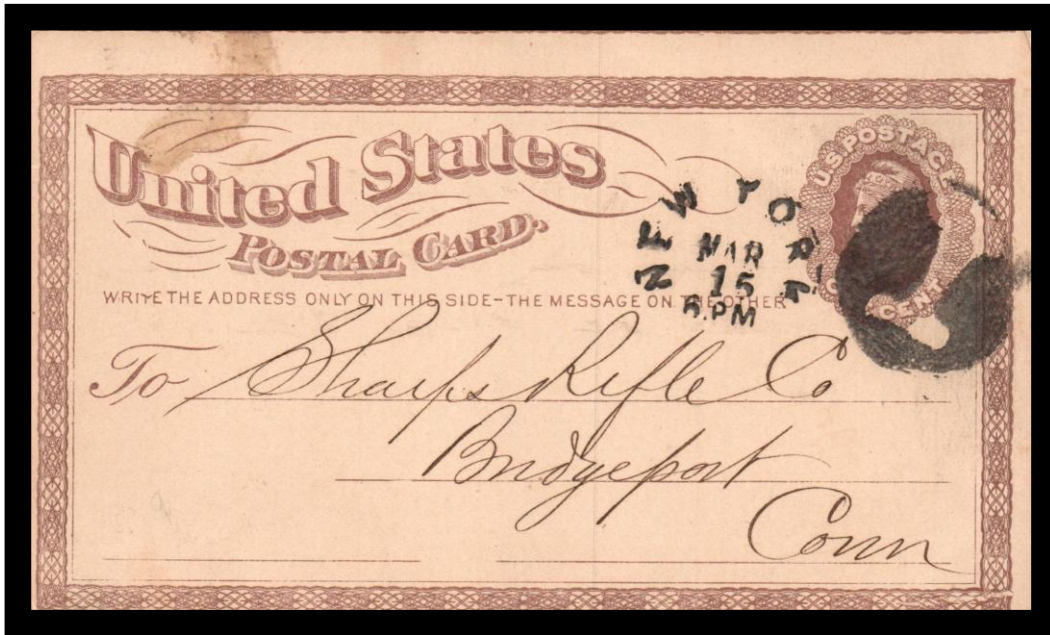 United States
POSTAL CARD.
U.S. POSTAGE
ONE CENT
NEW YORK
MAR
15
6.PM
WRITE THE ADDRESS ONLY ON THIS SIDE-THE MESSAGE ON THE OTHER
To Sharps Rifle Co
Bridgeport
Conn